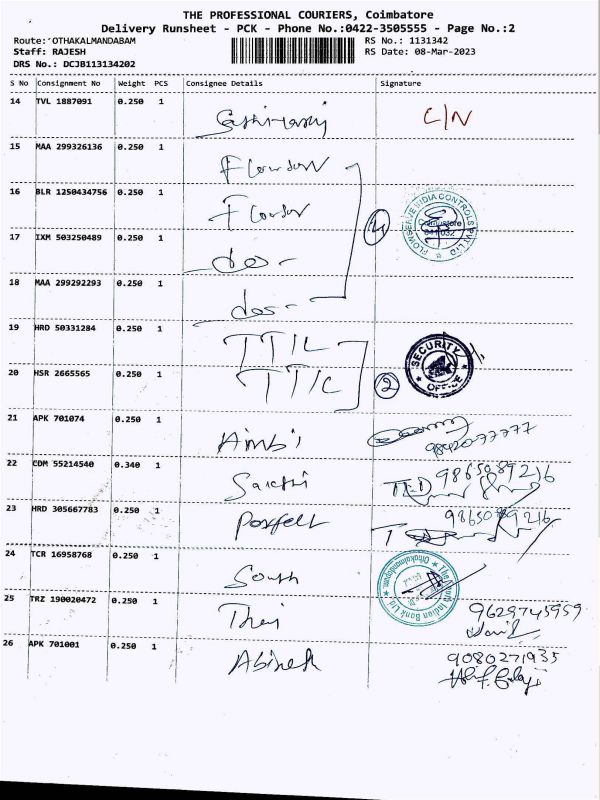 THE PROFESSIONAL COURIERS, Coimbatore
Delivery Runsheet - PCK - Phone No.:0422-3505555 - Page No.:2
Route: OTHAKALMANDABAM RS No.: 1131342
Staff: RAJESH RS Date: 08-Mar-2023
DRS No.: DCJB113134202
S No Consignment No Weight PCS Consignee Details Signature
14 TVL 1887091 0.250 1 C/N
15 MAA 299326136 0.250 1
16 BLR 1250434756 0.250 1
FLOWSERVE INDIA CONTROLS PVT LTD
Coimbatore
17 IXM 503250489 0.250 1 do -
4
18 MAA 299292293 0.250 1 do -
19 HRD 50331284 0.250 1 TTL
SECURITY OFFICE
20 HSR 2665565 0.250 1
2
21 APK 701074 0.250 1 9842077777
22 CDM 55214540 0.340 1 Sakthi 9865089216
23 HRD 305667783 0.250 1 Perfect 9865089216
24 TCR 16958768 0.250 1 South
The South Indian Bank Ltd. Othakalmandapam
25 TRZ 190020472 0.250 1 9629745959
26 APK 701001 0.250 1 Abinesh 9080271935